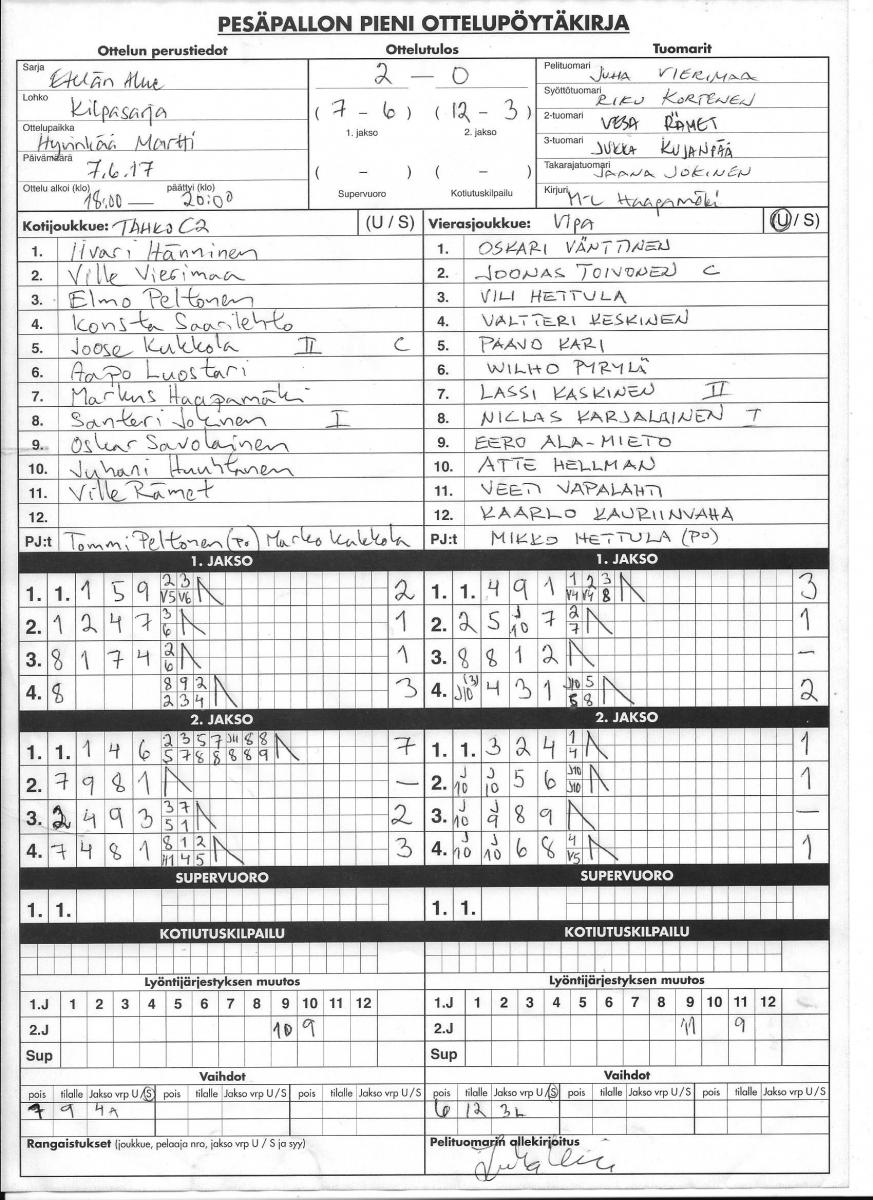 PESÄPALLON PIENI OTTELUPÖYTÄKIRJA
Ottelun perustiedot Ottelutulos Tuomarit
Sarja Etelän Alue
Lohko Kilpasarja
Ottelupaikka Hyvinkää Martti
Päivämäärä 7.6.17
Ottelu alkoi (klo) 18.00 — päättyi (klo) 20:00
2 — 0
( 7 - 6 ) ( 12 - 3 )
1. jakso 2. jakso
( - ) ( - )
Supervuoro Kotiutuskilpailu
Pelituomari JUHA VIERIMAA
Syöttötuomari RIKU KORTENEN
2-tuomari VESA RÄMET
3-tuomari JUKKA KUJANPÄÄ
Takarajatuomari JAANA JOKINEN
Kirjuri M-L Haapamäki
Kotijoukkue: TAHKO C2 (U / S)
1. Iivari Hänninen
2. Ville Vierimaa
3. Elmo Peltonen
4. Konsta Saarilehto
5. Joose Kukkola II C
6. Aapo Luostari
7. Markus Haapamäki
8. Santeri Jokinen I
9. Oskar Savolainen
10. Juhani Huuhtanen
11. Ville Rämet
12.
PJ:t Tommi Peltonen (po) Marko Kukkola
Vierasjoukkue: Vipa (U / S)
1. OSKARI VÄNTTINEN
2. JOONAS TOIVONEN C
3. VILI HETTULA
4. VALTTERI KESKINEN
5. PAAVO KARI
6. WILHO PYRYLÄ
7. LASSI KASKINEN II
8. NICLAS KARJALAINEN I
9. EERO ALA-MIETO
10. ATTE HELLMAN
11. VEETI VAPALAHTI
12. KAARLO KAURIINVAHA
PJ:t MIKKO HETTULA (PO)
1. JAKSO
1. 1. 1 5 9 2 3 2
V5 V6
2. 1 2 4 7 3 1
6
3. 8 1 7 4 2 1
6
4. 8 8 9 2 3
2 3 4
2. JAKSO
1. 1. 1 4 6 2 3 5 7 J11 8 8 7
5 7 8 8 8 8 9
2. 7 9 8 1 —
3. 2 4 9 3 3 7 2
5 1
4. 7 4 8 1 8 1 2 3
4 5
SUPERVUORO
1. 1.
KOTIUTUSKILPAILU
1. JAKSO
1. 1. 4 9 1 1 2 3 3
V4 V4 8
2. 2 5 J10 7 2 1
7
3. 8 8 1 2 —
4. J10 (3) 4 3 1 J10 5 2
5 8
2. JAKSO
1. 1. 3 2 4 1 1
4
2. J10 J10 5 6 J10 1
J10
3. J10 J9 8 9 —
4. J10 J10 6 8 4 1
V5
SUPERVUORO
1. 1.
KOTIUTUSKILPAILU
Lyöntijärjestyksen muutos
1.J 1 2 3 4 5 6 7 8 9 10 11 12
2.J 10 9
Sup
Vaihdot
pois tilalle Jakso vrp U / S pois tilalle Jakso vrp U / S pois tilalle Jakso vrp U / S
7 9 4A
Rangaistukset (joukkue, pelaaja nro, jakso vrp U / S ja syy)
Lyöntijärjestyksen muutos
1.J 1 2 3 4 5 6 7 8 9 10 11 12
2.J 11 9
Sup
Vaihdot
pois tilalle Jakso vrp U / S pois tilalle Jakso vrp U / S pois tilalle Jakso vrp U / S
6 12 3L
Pelituomarin allekirjoitus